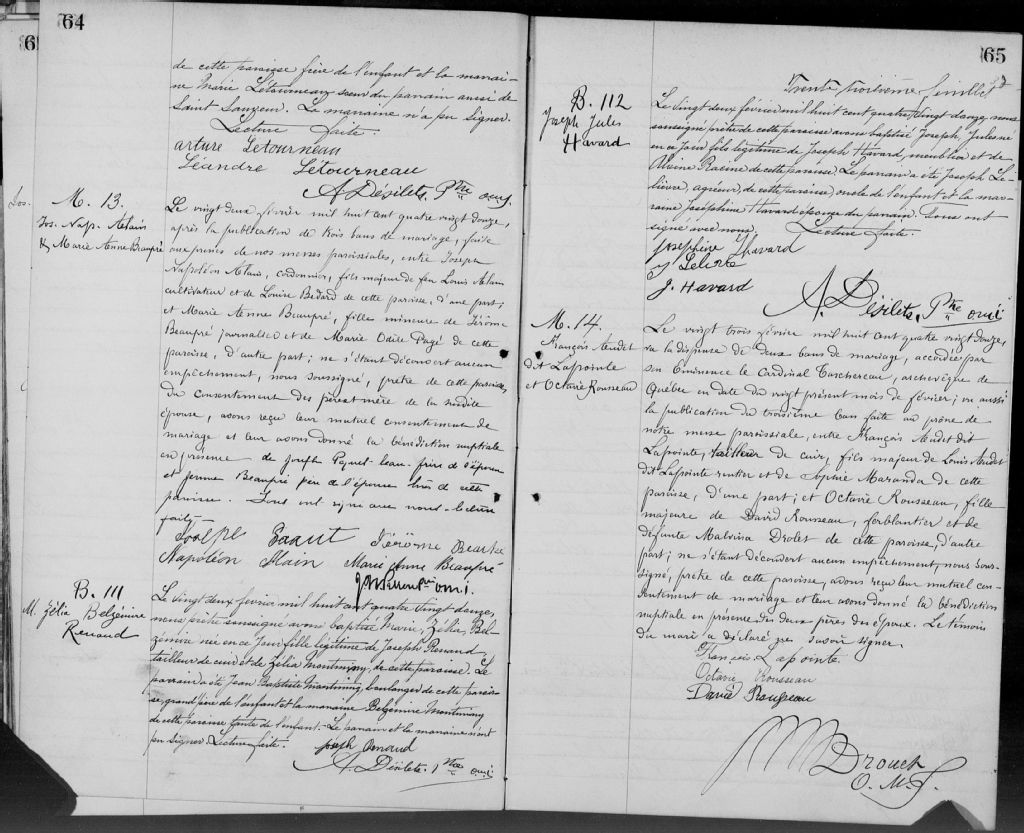 64
de cette paroisse frère de l'enfant et la marrai-
ne Marie Létourneau sœur du parrain aussi de
Saint Sauveur. La marraine n'a pu signer.
Lecture faite.
arture Letourneau
Léandre Létourneau
A. Désilets, Ptre omi,
M. 13.
Jos. Nap. Alain
& Marie Anne Beaupré
Le vingt deux février mil huit cent quatre vingt douze,
après la publication de trois bans de mariage, faite
aux prônes de nos messes paroissiales, entre Joseph
Napoléon Alain, cordonnier, fils majeur de feu Louis Alain
cultivateur et de Louise Bedard de cette paroisse, d'une part;
et Marie Anne Beaupré, fille mineure de Jérôme
Beaupré journalier et de Marie Odile Pagé de cette
paroisse, d'autre part; ne s'étant découvert aucun
empêchement, nous soussigné, prêtre de cette paroisse,
du consentement des père et mère de la susdite
épouse, avons reçu leur mutuel consentement de
mariage et leur avons donné la bénédiction nuptiale
en présence de Joseph Paquet beau-frère de l'époux
et Jérôme Beaupré père de l'épouse tous de cette
paroisse. Tous ont signé avec nous. Lecture
faite
Joseph Paquet Jérôme Beaupré
Napoléon Alain Marie Anne Beaupré
ptre o.m.i.
B. 111
M. Zélia Belzémire
Renaud
Le vingt deux février mil huit cent quatre vingt douze,
nous prêtre soussigné avons baptisé Marie, Zélia, Bel-
zémire née en ce jour fille légitime de Joseph Renaud,
tailleur de cuir et de Zélia Montminy, de cette paroisse. Le
parrain a été Jean Baptiste Montminy, boulanger de cette parois-
se, grand père de l'enfant et la marraine Belzémire Montminy
de cette paroisse tante de l'enfant. Le parrain et la marraine n'ont
pu signer. Lecture faite.
Joseph Renaud
A. Désilets, Ptre omi
65
Trente troisième feuillet
B. 112
Joseph Jules
Havard
Le vingt deux février mil huit cent quatre vingt douze, nous
soussigné prêtre de cette paroisse avons baptisé Joseph, Jules né
en ce jour fils légitime de Joseph Havard, meublier et de
Alvine Racine de cette paroisse. Le parrain a été Joseph Le-
lièvre, agréeur, de cette paroisse, oncle de l'enfant et la mar-
raine Joséphine Havard épouse du parrain. Tous ont
signé avec nous. Lecture faite.
Josephine Havard
J. Havard
A. Désilets, Ptre omi
M. 14.
François Audet
dit Lapointe
et Octavie Rousseau
Le vingt trois février mil huit cent quatre vingt douze,
vu la dispense de deux bans de mariage, accordée par
son Éminence le Cardinal Taschereau, archevêque de
Québec en date du vingt présent mois de février; vu aussi
la publication du troisième ban faite au prône de
notre messe paroissiale, entre François Audet dit
Lapointe, tailleur de cuir, fils majeur de Louis Audet
dit Lapointe rentier et de Sophie Maranda de cette
paroisse, d'une part; et Octavie Rousseau, fille
majeure de David Rousseau, ferblantier et de
défunte Malvina Drolet de cette paroisse, d'autre
part; ne s'étant découvert aucun empêchement, nous sous-
signé, prêtre de cette paroisse, avons reçu leur mutuel con-
sentement de mariage et leur avons donné la bénédiction
nuptiale en présence des deux pères des époux. Le témoin
du marié a déclaré ne savoir signer
François Lapointe
Octavie Rousseau
David Rousseau
Drouet
O.M.I.